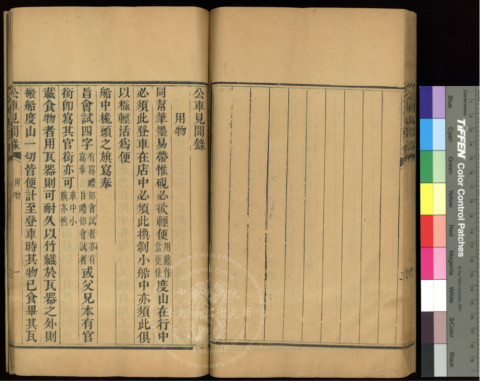 公車見聞錄
用物
同幫筆墨易帶惟硯必欲輕便用廳作度山在行中
必須此登車在店中必須此換剝小船中亦須此俱
以極輕活爲便
船中桅頭之旗寫奉
旨會試四字
或父兄本有官
銜卽寫其官銜亦可車中小旗亦然
藏食物者用瓦器則可耐久以竹織於瓦器之外則
搬船度山一切皆便計至登車時其物已食畢其瓦
公車見聞錄
用物
一
TIFFEN Color Control Patches
Blue
Cyan
Green
Yellow
Red
Magenta
White
3/Color
Black